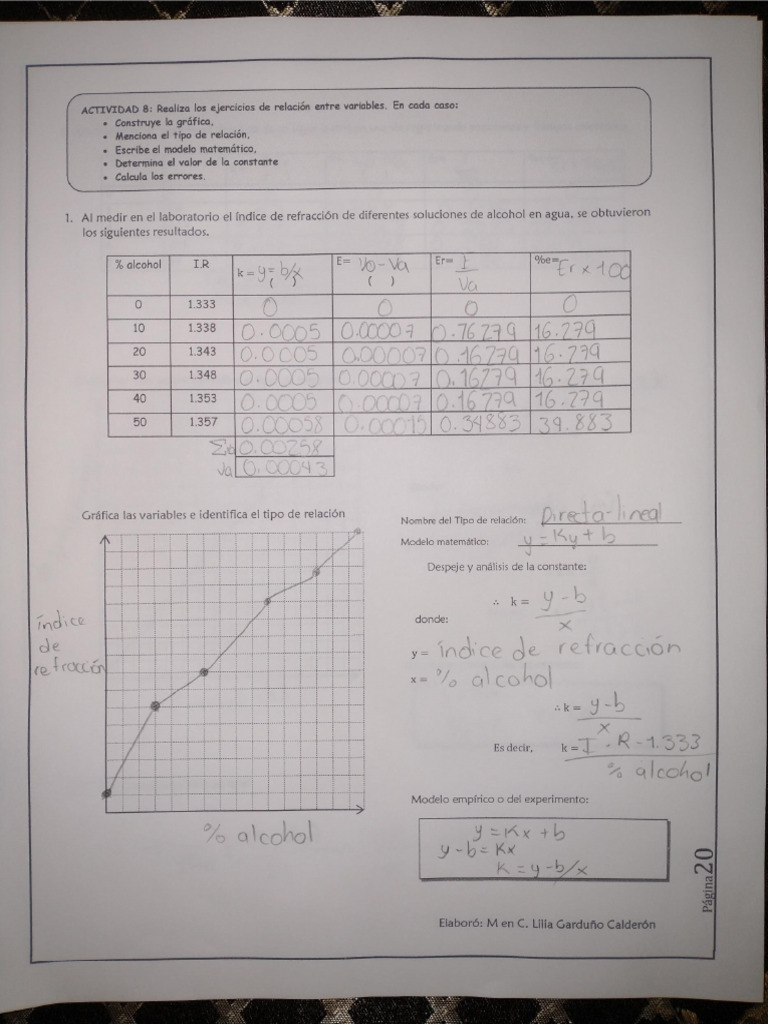 ACTIVIDAD 8: Realiza los ejercicios de relación entre variables. En cada caso:
• Construye la gráfica,
• Menciona el tipo de relación,
• Escribe el modelo matemático,
• Determina el valor de la constante
• Calcula los errores.
1. Al medir en el laboratorio el índice de refracción de diferentes soluciones de alcohol en agua, se obtuvieron
los siguientes resultados.
% alcohol I.R k = y = b/x ( ) E= Vo - Va ( ) Er= E/Va %e= Er x 100
0 1.333 0 0 0 0
10 1.338 0.0005 0.00007 0.16279 16.279
20 1.343 0.0005 0.00007 0.16279 16.279
30 1.348 0.0005 0.00007 0.16279 16.279
40 1.353 0.0005 0.00007 0.16279 16.279
50 1.357 0.00058 0.00015 0.34883 34.883
0.00258
Va 0.00043
Gráfica las variables e identifica el tipo de relación
índice
de
refracción
% alcohol
Nombre del Tipo de relación: Directo-lineal
Modelo matemático: y = Ky + b
Despeje y análisis de la constante:
∴ k = y - b
x
donde:
y = índice de refracción
x = % alcohol
∴ k = y - b
x
Es decir, k = I.R - 1.333
% alcohol
Modelo empírico o del experimento:
y = Kx + b
y - b = Kx
K = y - b/x
Página20
Elaboró: M en C. Lilia Garduño Calderón